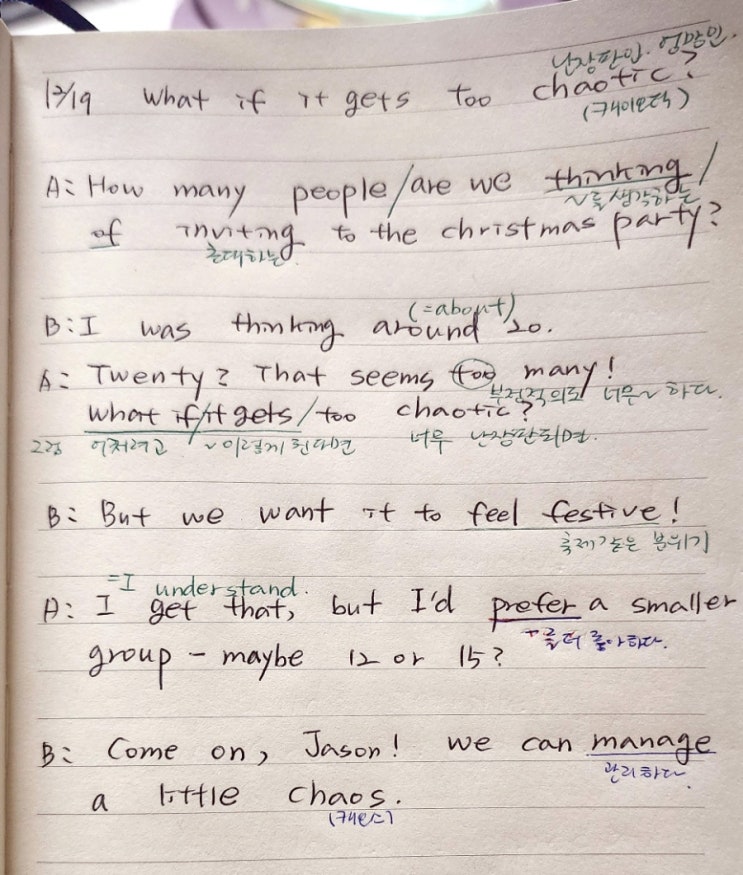 난장판인. 엉망인.
12/19 What if it gets too chaotic?
(케이오틱)
A: How many people/are we thinking/
~를 생각하는
of inviting to the christmas party?
초대하는
(=about)
B: I was thinking around 20.
A: Twenty? That seems too many!
부정적의로 너무~ 하다.
what if/it gets/too chaotic?
그러다 어쩌려고 ~이렇게 된다면 너무 난장판되면.
B: But we want it to feel festive!
축제같은 분위기
=I understand.
A: I get that, but I'd prefer a smaller
+를 더 좋아하다.
group - maybe 12 or 15?
B: Come on, Jason! we can manage
관리하다.
a little chaos.
(케이오스)